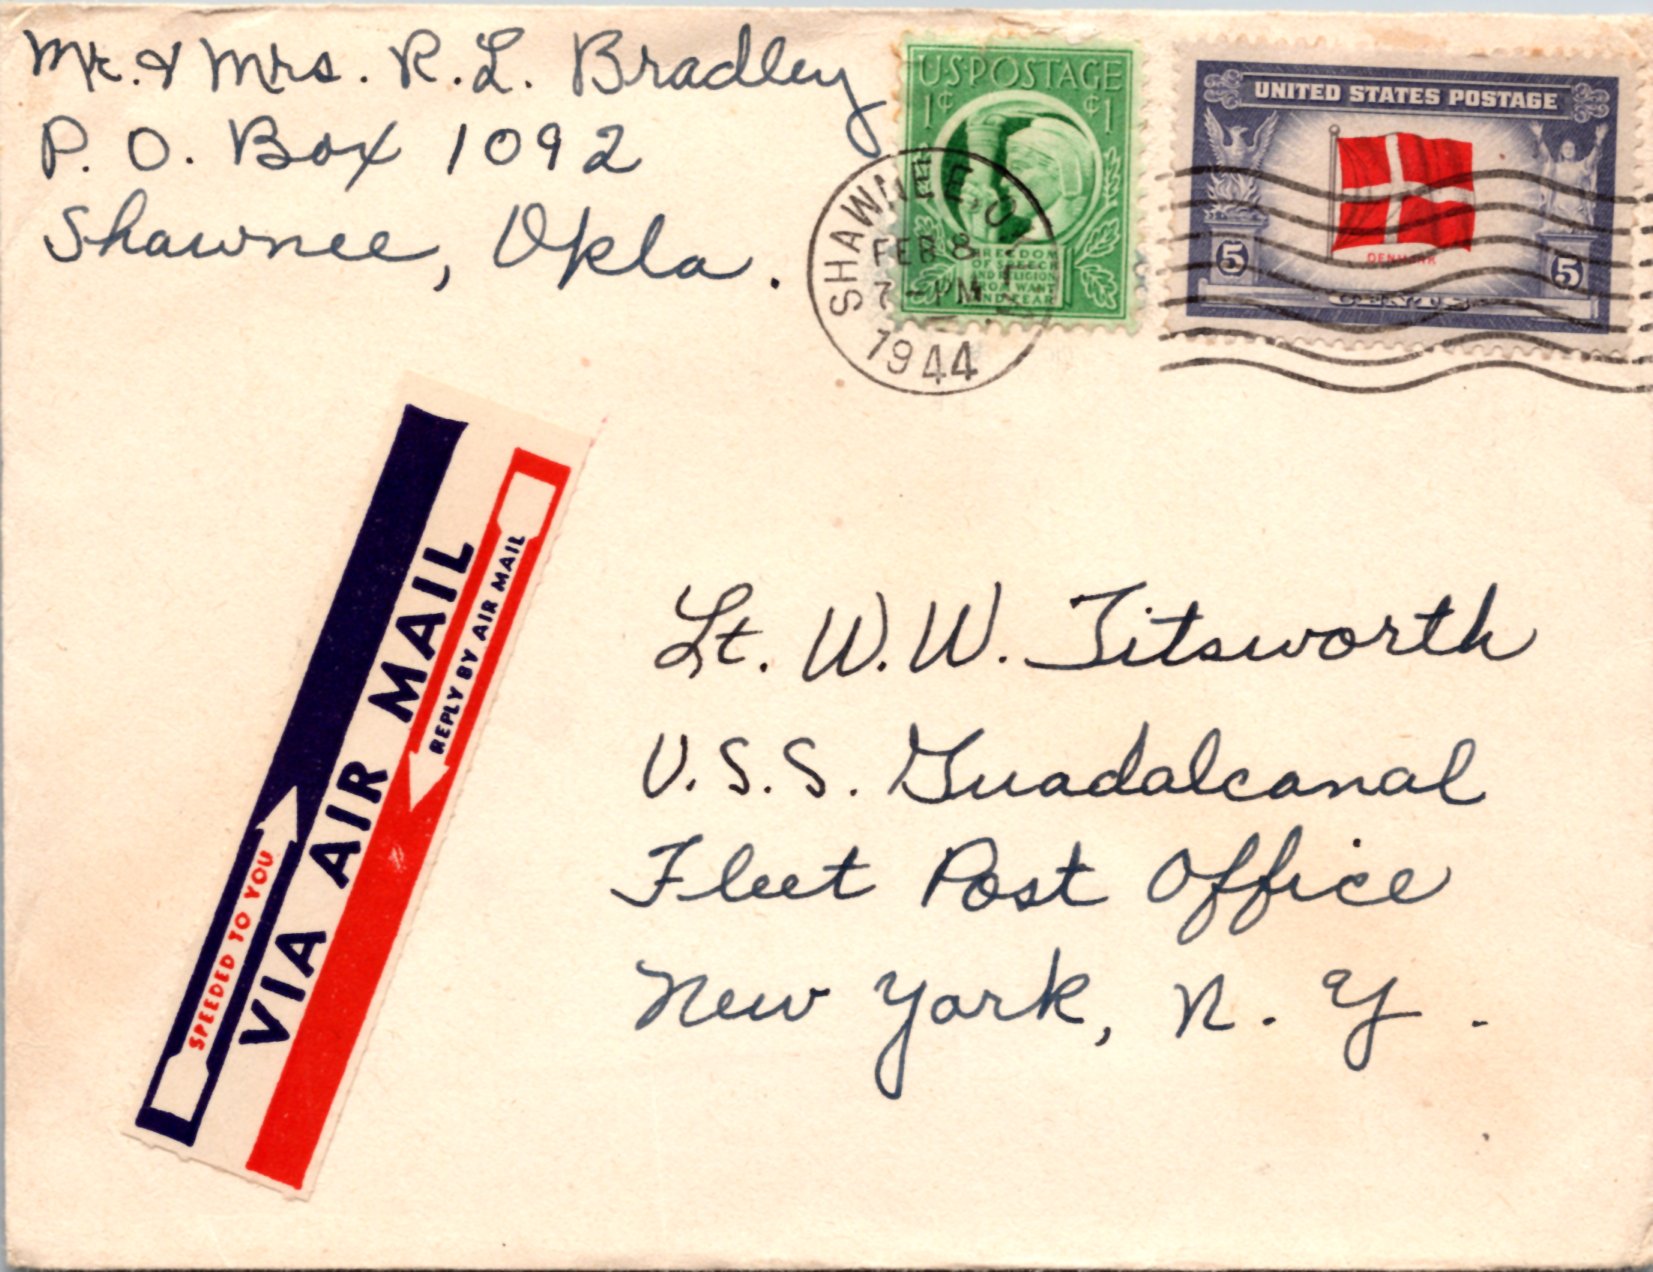 Mr. & Mrs. R. L. Bradley
P. O. Box 1092
Shawnee, Okla.
U.S. POSTAGE
1¢ ¢1
FREEDOM
OF SPEECH
AND RELIGION
FROM WANT
AND FEAR
UNITED STATES POSTAGE
DENMARK
5 5
CENTS
SHAWNEE, O
FEB 8
7 - PM
1944
VIA AIR MAIL
SPEEDED TO YOU
REPLY BY AIR MAIL
Lt. W. W. Titsworth
U.S.S. Guadalcanal
Fleet Post Office
New York, N. Y.